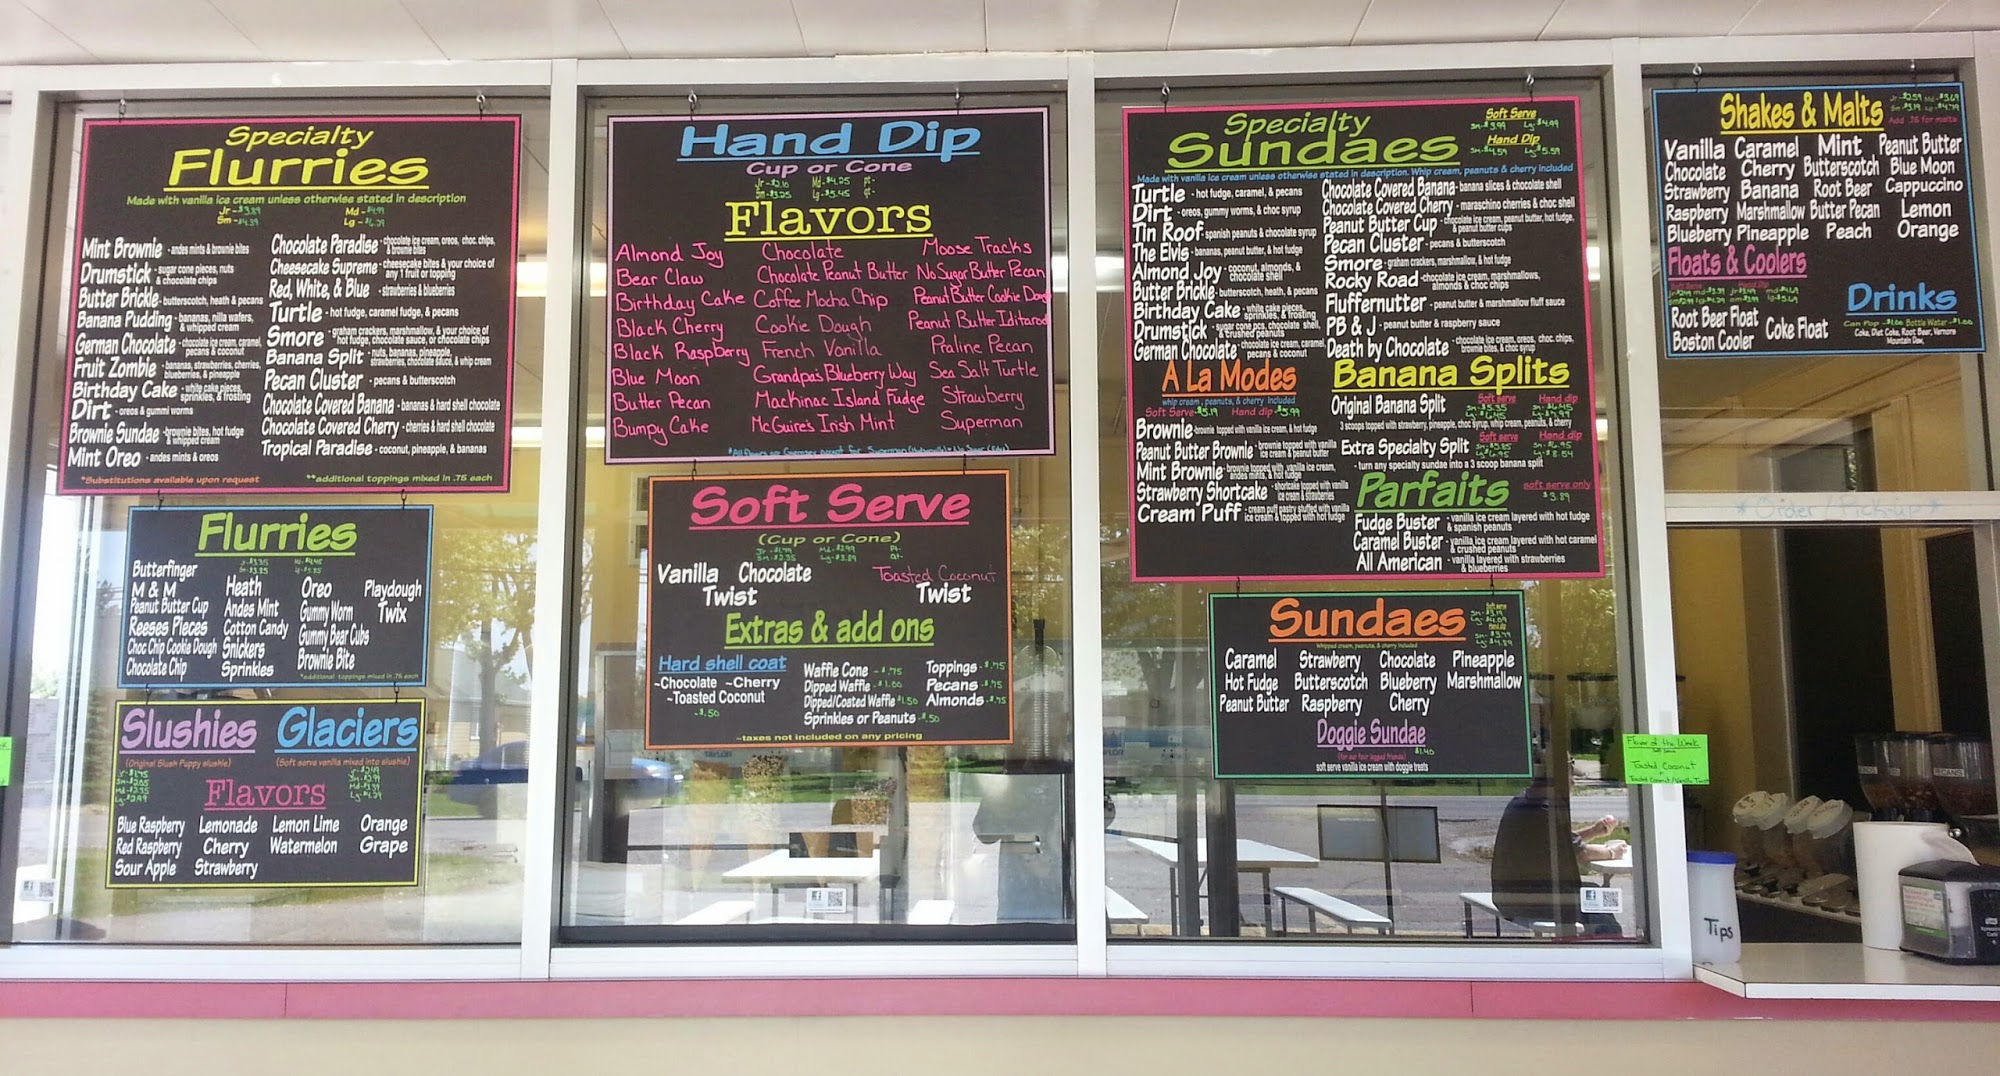 Specialty
Flurries
Made with vanilla ice cream unless otherwise stated in description
Jr - $3.89 Md - $4.99
Sm - $4.39 Lg - $6.39
Mint Brownie - andes mints & brownie bites
Drumstick - sugar cone pieces, nuts & chocolate chips
Butter Brickle - butterscotch, heath & pecans
Banana Pudding - bananas, nilla wafers, & whipped cream
German Chocolate - chocolate ice cream, caramel, pecans & coconut
Fruit Zombie - bananas, strawberries, cherries, blueberries, & pineapple
Birthday Cake - white cake pieces, sprinkles, & frosting
Dirt - oreos & gummi worms
Brownie Sundae - brownie bites, hot fudge & whipped cream
Mint Oreo - andes mints & oreos
Chocolate Paradise - chocolate ice cream, oreos, choc. chips, & brownie bites
Cheesecake Supreme - cheesecake bites & your choice of any 1 fruit or topping
Red, White, & Blue - strawberries & blueberries
Turtle - hot fudge, caramel, fudge, & pecans
Smore - graham crackers, marshmallow, & your choice of hot fudge, chocolate sauce, or chocolate chips
Banana Split - nuts, bananas, pineapple, strawberries, chocolate sauce, & whip cream
Pecan Cluster - pecans & butterscotch
Chocolate Covered Banana - bananas & hard shell chocolate
Chocolate Covered Cherry - cherries & hard shell chocolate
Tropical Paradise - coconut, pineapple, & bananas
*Substitutions available upon request **additional toppings mixed in .75 each
Flurries
Butterfinger
M & M
Peanut Butter Cup
Reeses Pieces
Choc Chip Cookie Dough
Chocolate Chip
Heath
Andes Mint
Cotton Candy
Snickers
Sprinkles
Oreo
Gummy Worm
Gummy Bear Cubs
Brownie Bite
Playdough
Twix
*additional toppings mixed in .75 each
Slushies
(Original Slush Puppy slushie)
Glaciers
(Soft serve vanilla mixed into slushie)
Flavors
Blue Raspberry Lemonade Lemon Lime Orange
Red Raspberry Cherry Watermelon Grape
Sour Apple Strawberry
Hand Dip
Cup or Cone
Jr - $2.10 Md - $4.25 pt -
Sm - $3.25 Lg - $5.45 qt -
Flavors
Almond Joy
Bear Claw
Birthday Cake
Black Cherry
Black Raspberry
Blue Moon
Butter Pecan
Bumpy Cake
Chocolate
Chocolate Peanut Butter
Coffee Mocha Chip
Cookie Dough
French Vanilla
Grandpa's Blueberry Way
Mackinac Island Fudge
McGuire's Irish Mint
Moose Tracks
No Sugar Butter Pecan
Peanut Butter Cookie Dough
Peanut Butter Iditarod
Praline Pecan
Sea Salt Turtle
Strawberry
Superman
Soft Serve
(Cup or Cone)
Vanilla Chocolate
Twist
Toasted Coconut
Twist
Extras & add ons
Hard shell coat
~Chocolate ~Cherry
~Toasted Coconut
-$.50
Waffle Cone - $.75
Dipped Waffle - $1.00
Dipped/Coated Waffle $1.50
Sprinkles or Peanuts - $.50
Toppings - $.75
Pecans - $.75
Almonds - $.75
~taxes not included on any pricing
Specialty
Sundaes
Soft Serve
Sm - $3.99 Lg - $4.99
Hand Dip
Sm - $4.59 Lg - $5.59
Made with vanilla ice cream unless otherwise stated in description. Whip cream, peanuts & cherry included
Turtle - hot fudge, caramel, & pecans
Dirt - oreos, gummy worms, & choc syrup
Tin Roof - spanish peanuts & chocolate syrup
The Elvis - bananas, peanut butter, & hot fudge
Almond Joy - coconut, almonds, & chocolate shell
Butter Brickle - butterscotch, heath, & pecans
Birthday Cake - white cake pieces, sprinkles, & frosting
Drumstick - sugar cone pcs, chocolate shell, & crushed peanuts
German Chocolate - chocolate ice cream, caramel, pecans & coconut
Chocolate Covered Banana - banana slices & chocolate shell
Chocolate Covered Cherry - maraschino cherries & choc shell
Peanut Butter Cup - chocolate ice cream, peanut butter, hot fudge, & peanut butter cups
Pecan Cluster - pecans & butterscotch
Smore - graham crackers, marshmallow, & hot fudge
Rocky Road - chocolate ice cream, marshmallows, almonds & choc chips
Fluffernutter - peanut butter & marshmallow fluff sauce
PB & J - peanut butter & raspberry sauce
Death by Chocolate - chocolate ice cream, oreos, choc. chips, brownie bites, & choc syrup
A La Modes
whip cream, peanuts, & cherry included
Soft Serve - $5.19 Hand dip - $5.99
Brownie - brownie topped with vanilla ice cream, & hot fudge
Peanut Butter Brownie - brownie topped with vanilla ice cream & peanut butter
Mint Brownie - brownie topped with vanilla ice cream, andes mints, & hot fudge
Strawberry Shortcake - shortcake topped with vanilla ice cream & strawberries
Cream Puff - cream puff pastry stuffed with vanilla ice cream & topped with hot fudge
Banana Splits
Original Banana Split
Soft serve Hand dip
3 scoops topped with strawberry, pineapple, choc syrup, whip cream, peanuts, & cherry
Extra Specialty Split
Soft serve Hand dip
- turn any specialty sundae into a 3 scoop banana split
Parfaits
soft serve only
$3.89
Fudge Buster - vanilla ice cream layered with hot fudge & spanish peanuts
Caramel Buster - vanilla ice cream layered with hot caramel & crushed peanuts
All American - vanilla layered with strawberries & blueberries
Sundaes
Whipped cream, peanuts, & cherry included
Caramel Strawberry Chocolate Pineapple
Hot Fudge Butterscotch Blueberry Marshmallow
Peanut Butter Raspberry Cherry
Doggie Sundae
$1.40
(for our four legged friends)
soft serve vanilla ice cream with doggie treats
Shakes & Malts
Add .75 for malts
Vanilla Caramel Mint Peanut Butter
Chocolate Cherry Butterscotch Blue Moon
Strawberry Banana Root Beer Cappuccino
Raspberry Marshmallow Butter Pecan Lemon
Blueberry Pineapple Peach Orange
Floats & Coolers
Root Beer Float
Boston Cooler
Coke Float
Drinks
Can Pop - $1.00 Bottle Water - $1.00
Coke, Diet Coke, Root Beer, Vernors
Mountain Dew,
*Order/Pick-up*
Flavor of the Week
Soft Serve
Toasted Coconut
Toasted Coconut/Vanilla Twist
PECANS
Tips